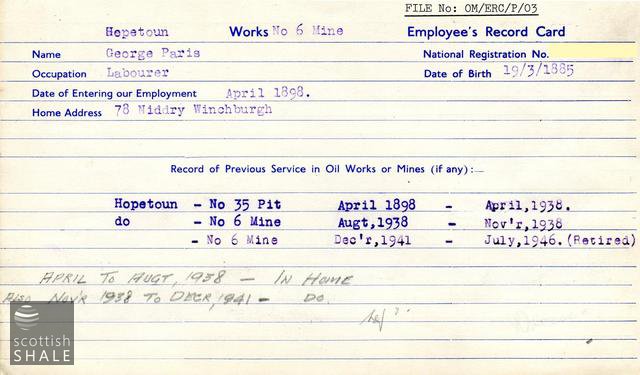 FILE No: OM/ERC/P/03
Hopetoun Works No 6 Mine Employee's Record Card
Name George Paris National Registration No.
Occupation Labourer Date of Birth 19/3/1885
Date of Entering our Employment April 1898.
Home Address 78 Niddry Winchburgh
Record of Previous Service in Oil Works or Mines (if any):—
Hopetoun - No 35 Pit April 1898 - April,1938.
do - No 6 Mine Augt,1938 - Nov'r,1938
- No 6 Mine Dec'r,1941 - July,1946. (Retired)
APRIL TO AUGT, 1938 - IN HOME
ALSO NOV'R 1938 TO DECR, 1941 - DO.
scottish
SHALE